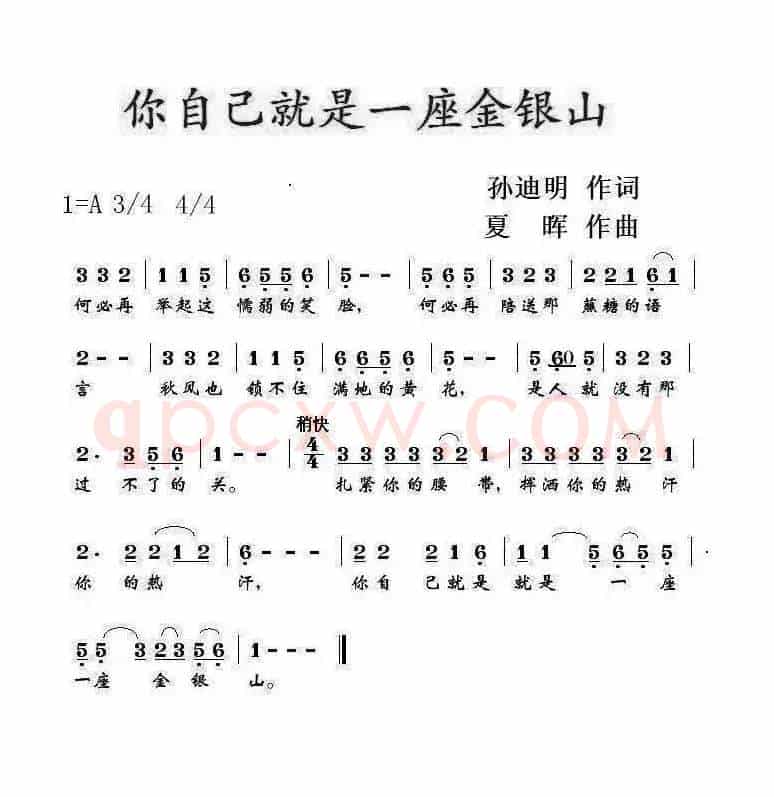 你自己就是一座金银山
孙迪明 作词
1=A 3/4 4/4
夏 晖 作曲
3 3 2 | 1 1 5 | 6 5 5 6 | 5 - - | 5 6 5 | 3 2 3 | 2 2 1 6 1 |
何必再 举起这 懦弱的笑 脸, 何必再 陪送那 蔗糖的语
2 - - | 3 3 2 | 1 1 5 | 6 6 5 6 | 2 - - | 5 60 5 | 3 2 3 |
言 秋风也 锁不住 满地的黄 花, 是人就 没有那
稍快
2 · 3 5 6 | 1 - - | 4/4 3 3 3 3 3 2 1 | 3 3 3 3 3 2 1 |
过 不了的 关。 扎紧你的腰 带,挥洒你的热汗
2 · 2 2 1 2 | 6 - - - | 2 2 2 2 1 6 | 1 1 5 6 5 5 |
你 的热 汗, 你自 己就是 就是 一 座
5 5 3 2 3 5 6 | 1 - - - ‖
一座 金 银 山。
qpcxw.COM